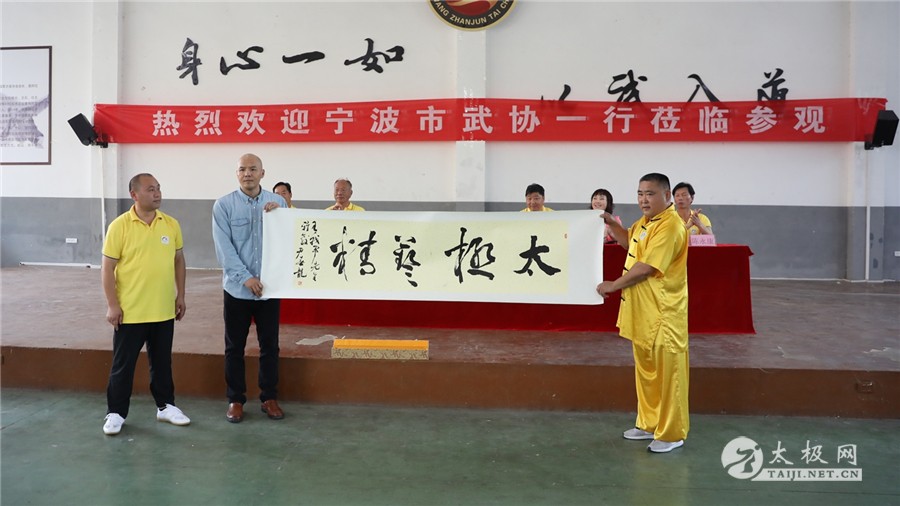 ANG ZHANJUN TAI CH
身心一如
以武入道
热烈欢迎宁波市武协一行莅临参观
太極藝精
太极网
TAIJI.NET.CN